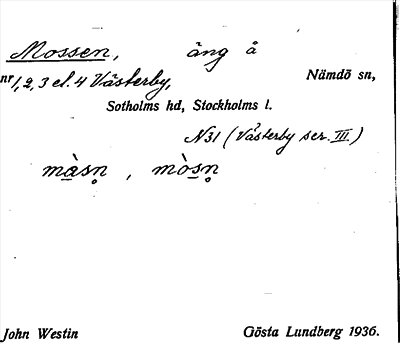 Mossen, äng å
nr 1, 2, 3 el. 4 Västerby, Nämdö sn,
Sotholms hd, Stockholms l.
N31 (Västerby ser. III.)
màsn̥, mòsn̥
John Westin Gösta Lundberg 1936.